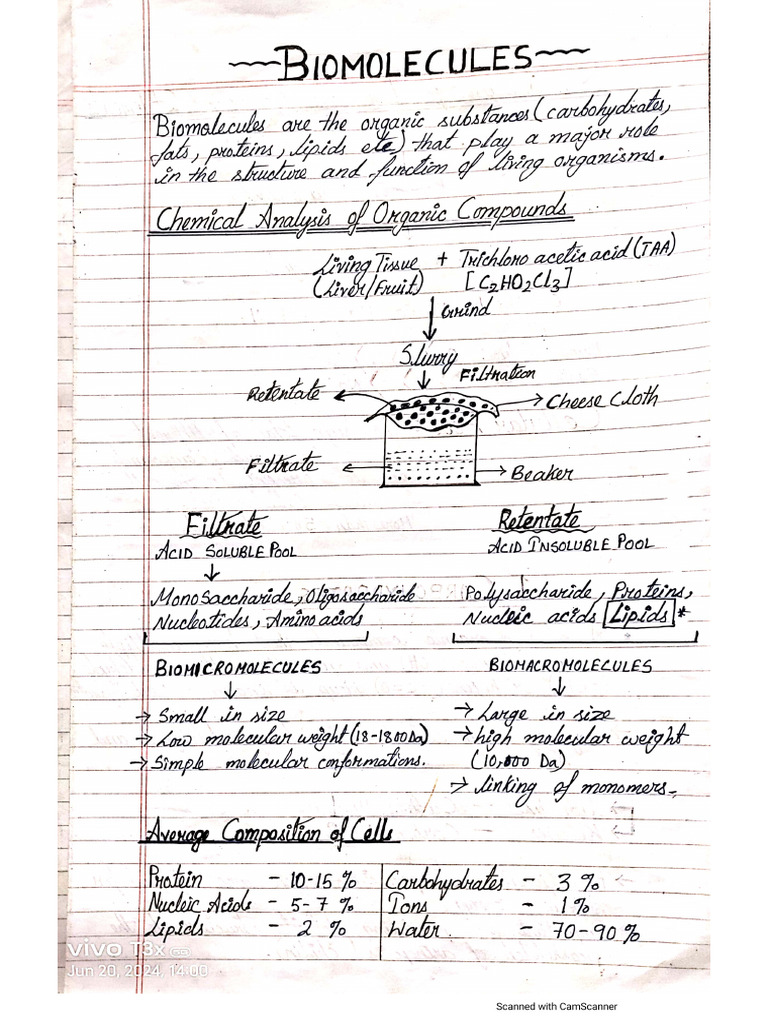 BIOMOLECULES
Biomolecules are the organic substances (carbohydrates,
fats, proteins, lipids etc) that play a major role
in the structure and function of living organisms.
Chemical Analysis of Organic Compounds
Living Tissue + Trichloro acetic acid (TAA)
(Liver/Fruit) [C2HO2Cl3]
Grind
Slurry
Filtration
Retentate
Cheese Cloth
Filtrate
Beaker
Filtrate
ACID SOLUBLE POOL
Monosaccharide, Oligosaccharide
Nucleotides, Amino acids
BIOMICROMOLECULES
→ Small in size
→ Low molecular weight (18-1800Da)
→ Simple molecular conformations.
Retentate
ACID INSOLUBLE POOL
Polysaccharide, Proteins,
Nucleic acids Lipids *
BIOMACROMOLECULES
→ Large in size
→ high molecular weight
(10,000 Da)
→ linking of monomers
Average Composition of Cells
Protein - 10-15 %
Nucleic Acids - 5-7 %
Lipids - 2 %
Carbohydrates - 3 %
Ions - 1 %
Water - 70-90 %
vivo T3x 5G
Jun 20, 2024, 14:00
Scanned with CamScanner